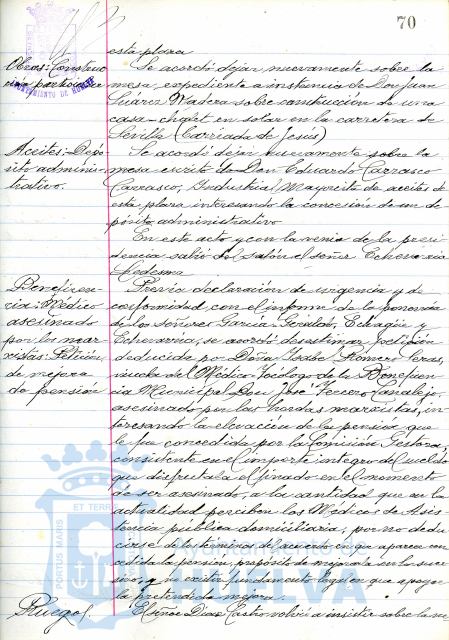 70
esta plaza
Obras: Construc
ción particular
Se acordó dejar nuevamente sobre la
mesa, expediente a instancia de Don Juan
Suárez Wadera sobre construcción de una
casa-chalet en solar en la carretera de
Sevilla (Barriada de Jesús)
Aceites: Depó
sito adminis-
trativo.
Se acordó dejar nuevamente sobre la
mesa escrito de Don Eduardo Carrasco
Carrasco, Industrial Mayorista de aceites de
esta plaza interesando la concesión de un de
pósito administrativo
En este acto y con la venia de la presi
dencia salió del salón el señor Echevarria
Ledesma
Beneficen-
cia: Médico
asesinado
por los mar-
xistas: Petición
de mejora
de pensión
Previa declaración de urgencia y de
conformidad con el informe de la ponencia
de los señores García, Echagüe y
Echevarria, se acordó desestimar petición
deducida por Doña Isabel Romero Peras,
viuda del Médico Tocólogo de la Beneficen
cia Municipal Don José Tercero Canalejo,
asesinado por las hordas marxistas, in-
teresando la elevación de la pensión que
le fue concedida por la Comisión Gestora,
consistente en el importe integro del sueldo
que disfrutaba el finado en el momento
de ser asesinado, a la cantidad que en la
actualidad perciben los Médicos de Asis
tencia pública domiciliaria, por no dedu
cirse de los términos del acuerdo en que aparece con
cedida la pensión, propósito de mejorarla en lo suce
sivo, y no existir fundamento legal en que apoyar
la pretendida mejora.
Ruegos.
El señor Diaz Castro volvió a insistir sobre la ne
AYUNTAMIENTO DE HUELVA
PORTUS MARIS ET TERRAE
Ayuntamiento de
HUELVA